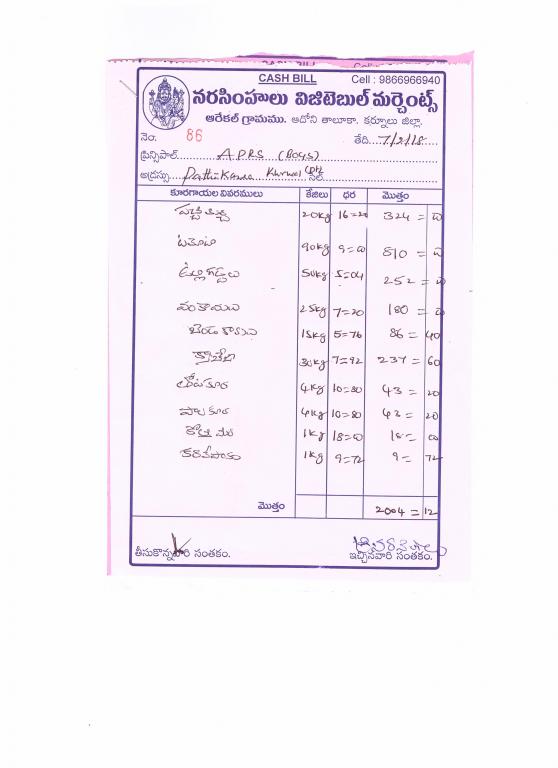 CASH BILL Cell : 9866966940
నరసింహులు విజిటెబుల్ మర్చెంట్స్
ఆరేకల్ గ్రామము. ఆదోని తాలూకా. కర్నూలు జిల్లా.
నెం. 86 తేది. 7/2/18
ప్రిన్సిపాల్ APRS (BOYS)
అడ్రస్సు
కూరగాయల వివరములు కేజీలు ధర మొత్తం
పచ్చిమిర్చి 20kg 16=20 324 = 00
టమోటా 90kg 9=00 810 = 00
ఉల్లిగడ్డలు 50kg 5=04 252 = 00
వంకాయలు 25kg 7=20 180 = 00
బెండకాయలు 15kg 5=76 86 = 40
క్యాబేజి 30kg 7=92 237 = 60
తోటకూర 4kg 10=80 43 = 20
పాలకూర 4kg 10=80 43 = 20
కొత్తిమీర 1kg 18=00 18= 00
కరివేపాకు 1kg 9=72 9= 72
మొత్తం 2004 = 12
తీసుకొన్నవారి సంతకం. ఇచ్చినవారి సంతకం.